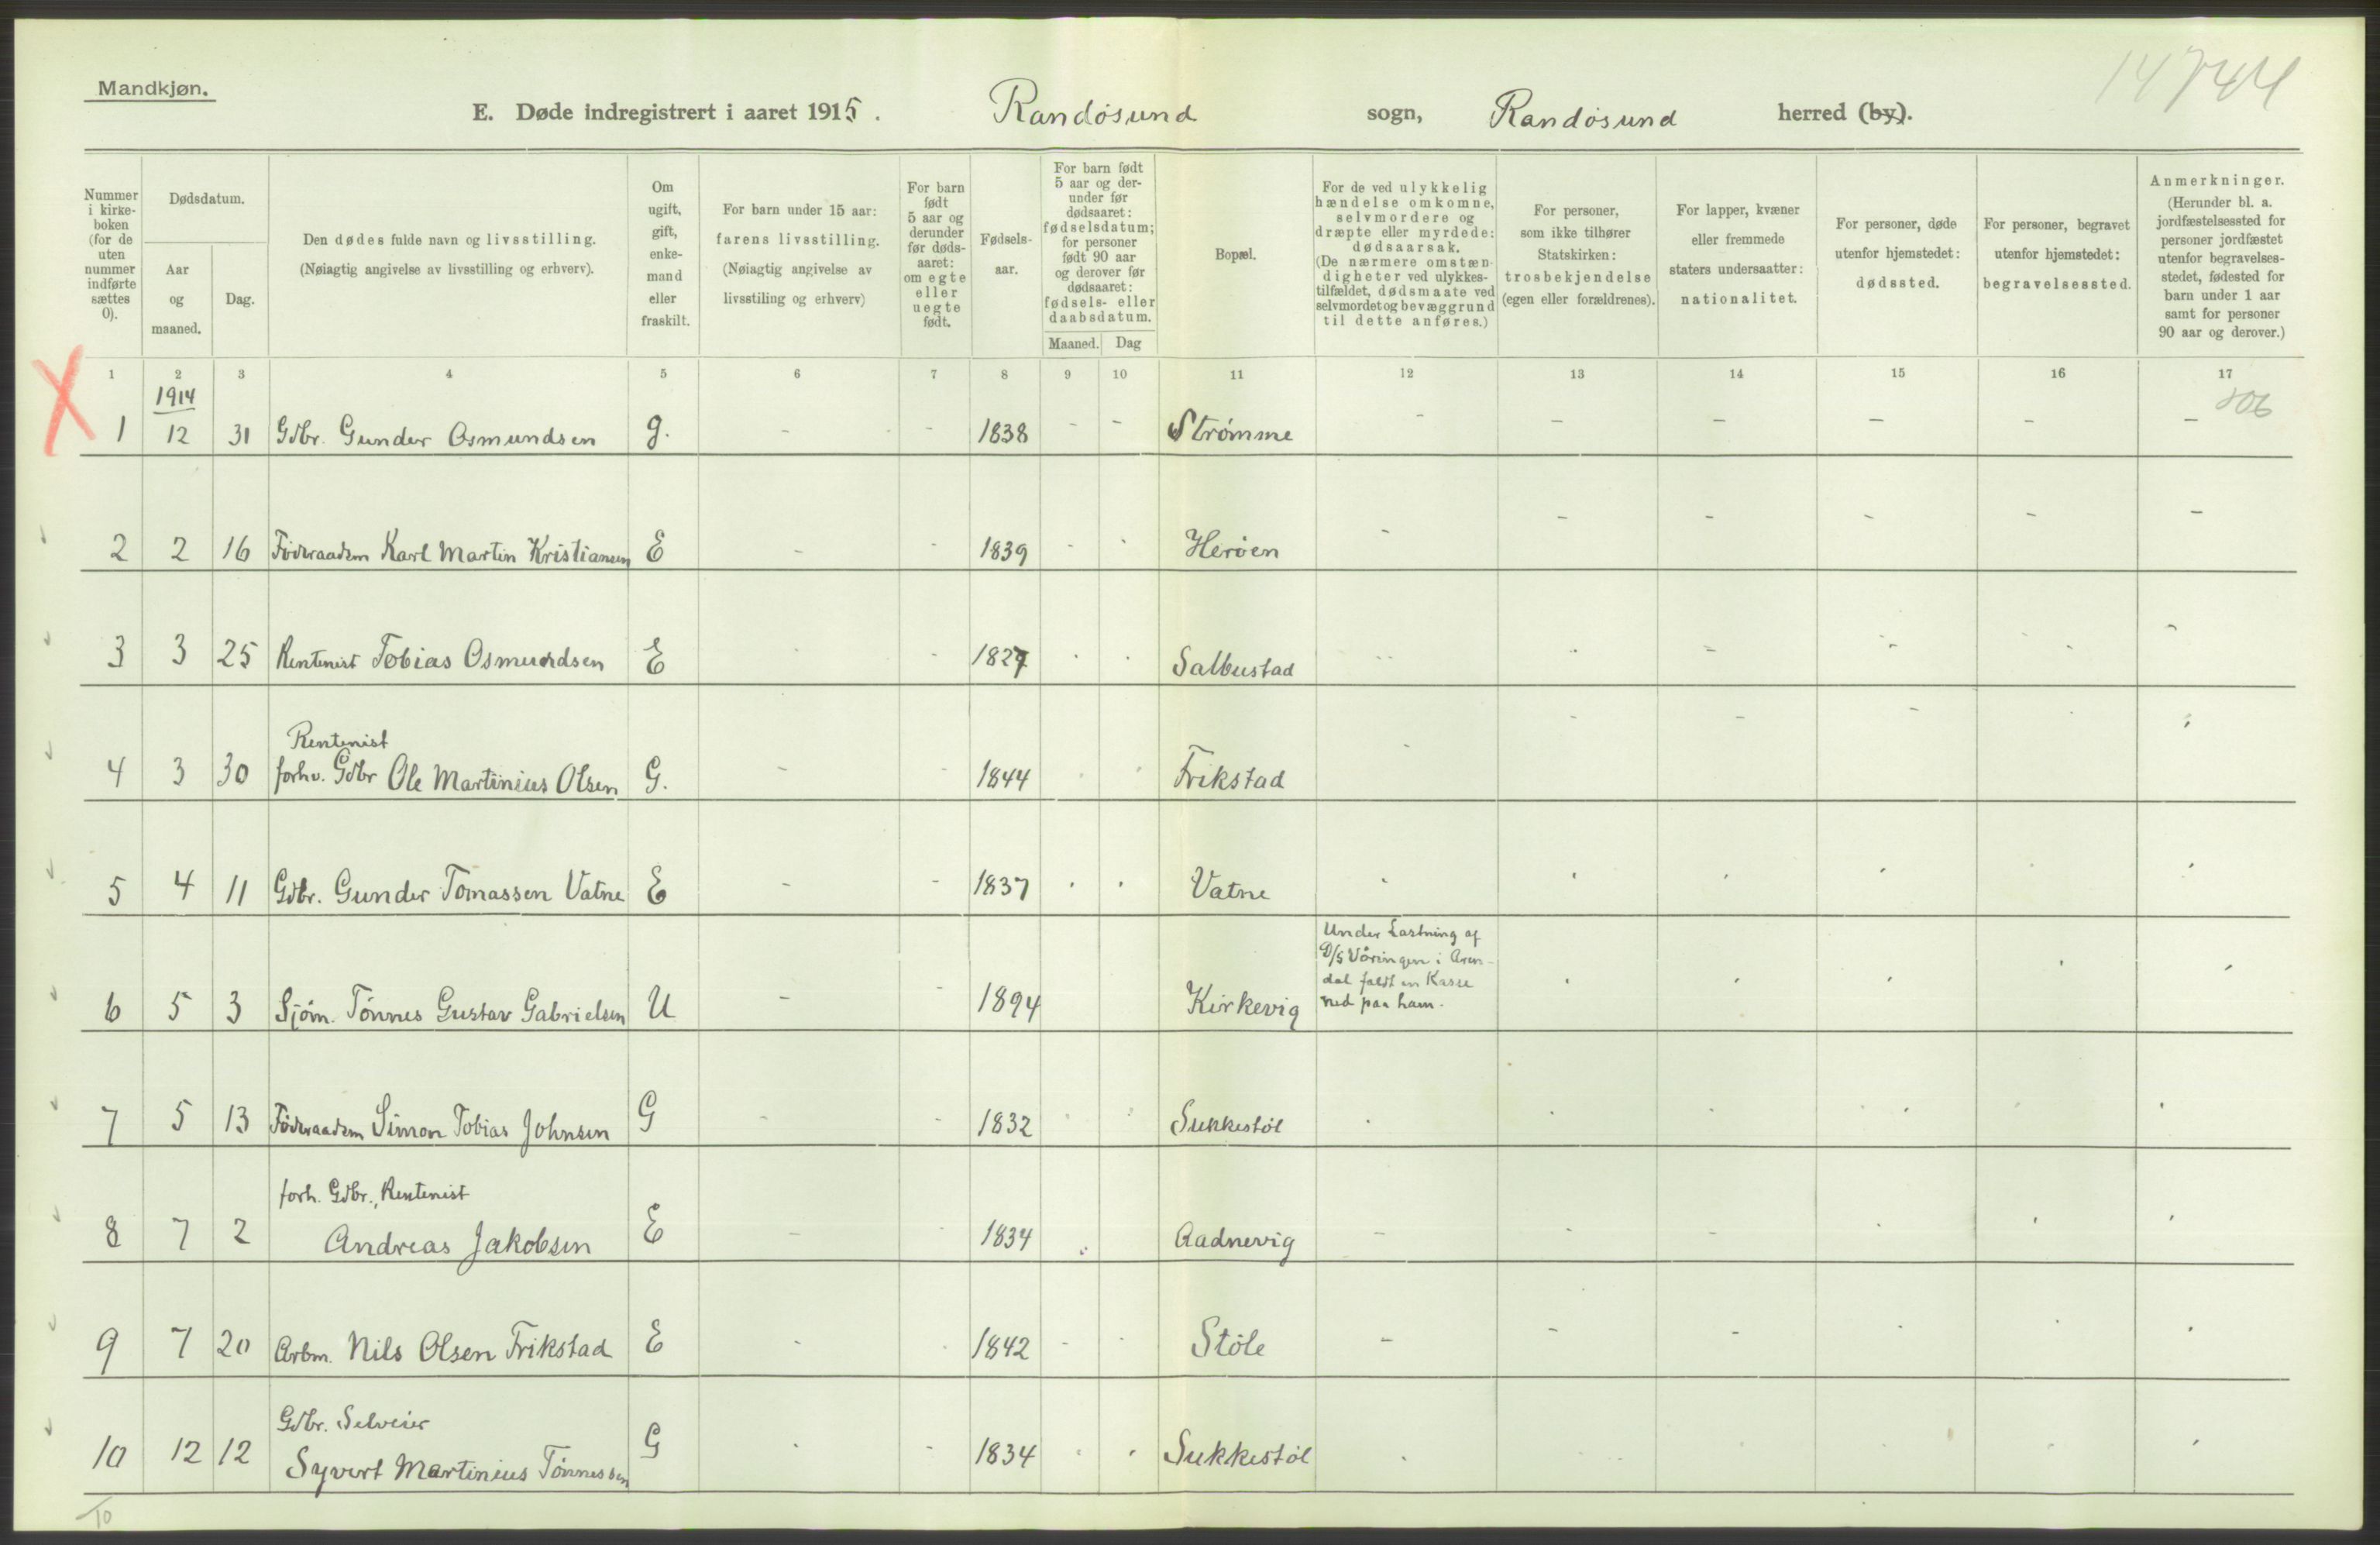 Mandkjøn.
14744
E. Døde indregistrert i aaret 1915. Randøsund sogn, Randøsund herred (by).
Nummer i kirke-boken (for de uten nummer indførte sættes 0).
Dødsdatum.
Aar og maaned.
Dag.
Den dødes fulde navn og livsstilling.
(Nøiagtig angivelse av livsstilling og erhverv).
Om ugift, gift, enke-mand eller fraskilt.
For barn under 15 aar: farens livsstilling.
(Nøiagtig angivelse av livsstiling og erhverv)
For barn født 5 aar og derunder før døds-aaret: om egte eller uegte født.
Fødsels-aar.
For barn født 5 aar og der-under før dødsaaret: fødselsdatum; for personer født 90 aar og derover før dødsaaret: fødsels- eller daabsdatum.
Maaned. Dag
Bopæl.
For de ved ulykkelig hændelse omkomne, selvmordere og dræpte eller myrdede: dødsaarsak.
(De nærmere omstæn-digheter ved ulykkes-tilfældet, dødsmaate ved selvmordet og bevæggrund til dette anføres.)
For personer, som ikke tilhører Statskirken: trosbekjendelse (egen eller forældrenes).
For lapper, kvæner eller fremmede staters undersaatter: nationalitet.
For personer, døde utenfor hjemstedet: dødssted.
For personer, begravet utenfor hjemstedet: begravelsessted.
Anmerkninger.
(Herunder bl. a. jordfæstelsessted for personer jordfæstet utenfor begravelses-stedet, fødested for barn under 1 aar samt for personer 90 aar og derover.)
1 2 3 4 5 6 7 8 9 10 11 12 13 14 15 16 17
1914
806
1 12 31 Gdbr. Gunder Osmundsen g. - - 1838 - - Strømme - - - - - -
2 2 16 Föderaadsm Karl Martin Kristiansen E - - 1839 - - Heröen - - - - - -
3 3 25 Rentenist Tobias Osmundsen E - - 1827 - - Salbustad - - - - - -
Rentenist
4 3 30 forhv. Gdbr Ole Martinius Olsen G. - - 1844 - - Frikstad - - - - - -
5 4 11 Gdbr. Gunder Tomassen Vatne E - - 1837 - - Vatne - - - - - -
Under Lastning af
D/S Vöringen i Aren-
dal faldt en Kasse
ned paa ham.
6 5 3 Sjöm. Tönnes Gustav Gabrielsen U - - 1894 Kirkevig - - - - -
7 5 13 Föderaadsm Simon Tobias Johnsen G - - 1832 - - Sukkestöl - - - - - -
forh. Gdbr., Rentenist
8 7 2 Andreas Jakobsen E - 1834 - Aadnevig - - - - - -
9 7 20 Arbm. Nils Olsen Frikstad E - - 1842 - - Stöle - - - - - -
Gdbr. Selveier
10 12 12 Syvert Martinius Tönnessen G - - 1834 - - Sukkestöl - - - - - -
10